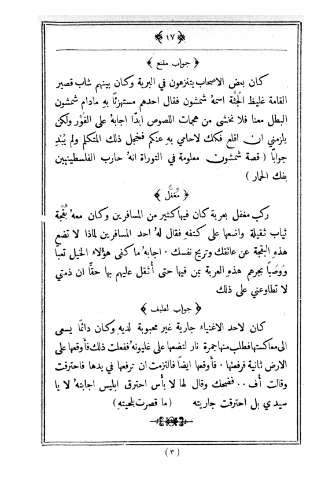 ﴿ ١٧ ﴾
﴿ جواب مقنع ﴾
كان بعض الاصحاب يتنزهون في البرية وكان بينهم شاب قصير
القامة غليظ الجثّة اسمهُ شمشون فقال احدهم مستهزئًا بهِ مادام شمشون
البطل معنا فلا نخشى من هجمات اللصوص ابدًا اجابهُ على الفَوْر ولكن
يلزمني ان اقلع فكك لاحامي بهِ عنكم فخجل ذلك المتكلم ولم يُبْدِ
جوابًا ( قصة شمشون معلومة في التوراة انهُ حارب الفلسطينيين
بفك الحمار )
﴿ مُغفَّل ﴾
ركب مغفل بعربة كان فيها كثير من المسافرين وكان معهُ بُقْجَة
ثياب ثقيلة واضعها على كتفهِ فقال لهُ احد المسافرين لماذا لا تضع
هذهِ البقجة عن عاتقك وتريح نفسك ٠ اجابهُ ما كفى هؤلاء الخيل تعبًا
وَوَصَبًا بجرهم هذهِ العربة بمن فيها حتى أُثقل عليهم بها حقًّا ان ذمتي
لا تطاوعني على ذلك
﴿ جواب لطيف ﴾
كان لاحد الاغنياء جارية غير محبوبة لديهِ وكان دائمًا يسعى
الى معاكستها فطلب منها جمرة نار لتضعها على غليونهِ ففعلت ذلك فأوقعها على
الارض ثانية فرفعتها ٠ فأوقعها ايضًا فالتزمت ان ترفعها في يدها فاحترقت
وقالت أف ٠٠ فضحك وقال لها لا بأس احترق ابليس اجابتهُ لا يا
سيدي بل احترقت جاريتهُ ( ما قصرت بلحيتهِ )
( ٣ )